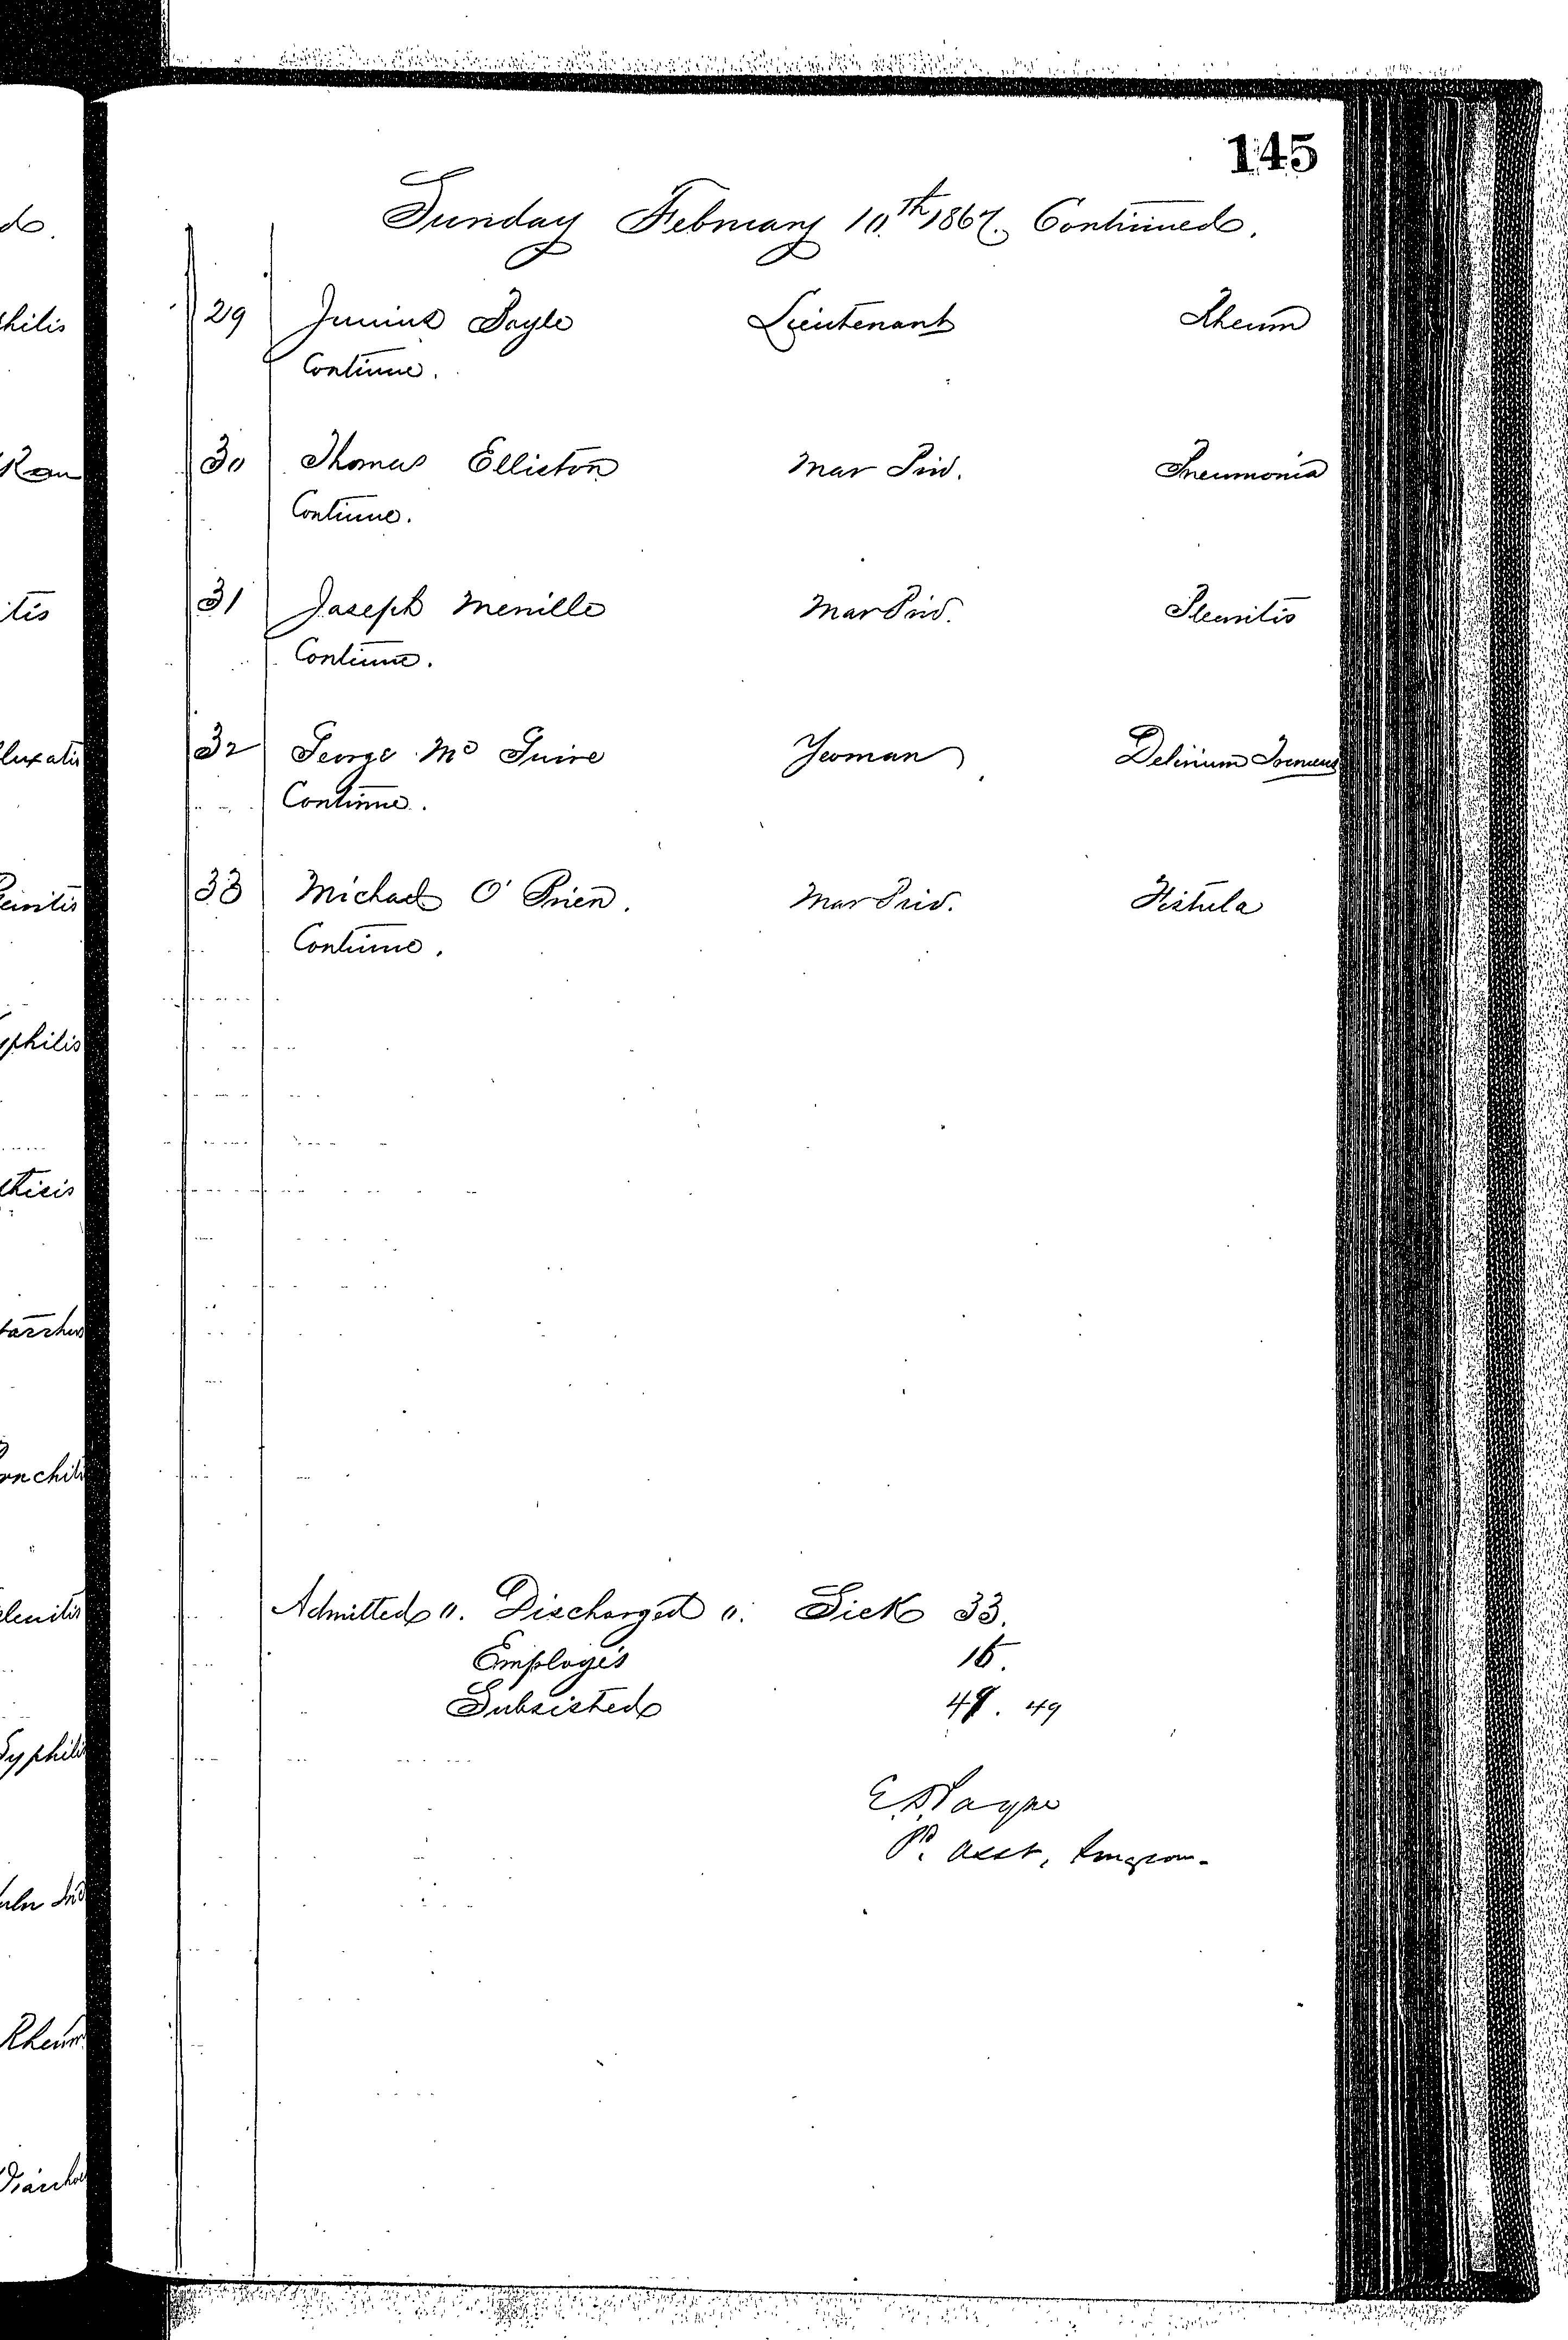 145
Sunday February 10th 1867. Continued.
29 Junius Boyle Lieutenant Rheum
Continue.
30 Thomas Elliston Mar Priv. Pneumonia
Continue.
31 Joseph Menille Mar Priv. Pleuritis
Continue.
32 George Mc Guire Yeoman Delirium Tremens
Continue.
33 Michael O' Brien. Mar Priv. Fistula
Continue.
Admitted 0. Discharged 0. Sick 33.
Employés
Subsisted 49
P. Asst. Surgeon.
philis
itis
luxatis
yphilis
thisis
onchiti
Syphilis
Rheum